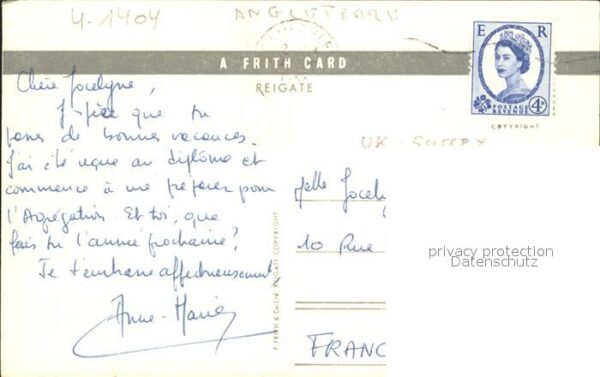 4-1404
ANGLETERRE
E R
POSTAGE
REVENUE
4D
A FRITH CARD
REIGATE
COPYRIGHT
UK - SURREY
Chère Jocelyne,
J'espère que tu
passes de bonnes vacances.
J'ai été reçue au diplôme et
commence à me préparer pour
l'Agrégation. Et toi, que
fais tu l'année prochaine?
Je t'embrasse affectueusement
Anne-Marie
F. FRITH & CO. LTD. REIGATE COPYRIGHT
Melle Jocely
10 Rue
FRANC
privacy protection
Datenschutz